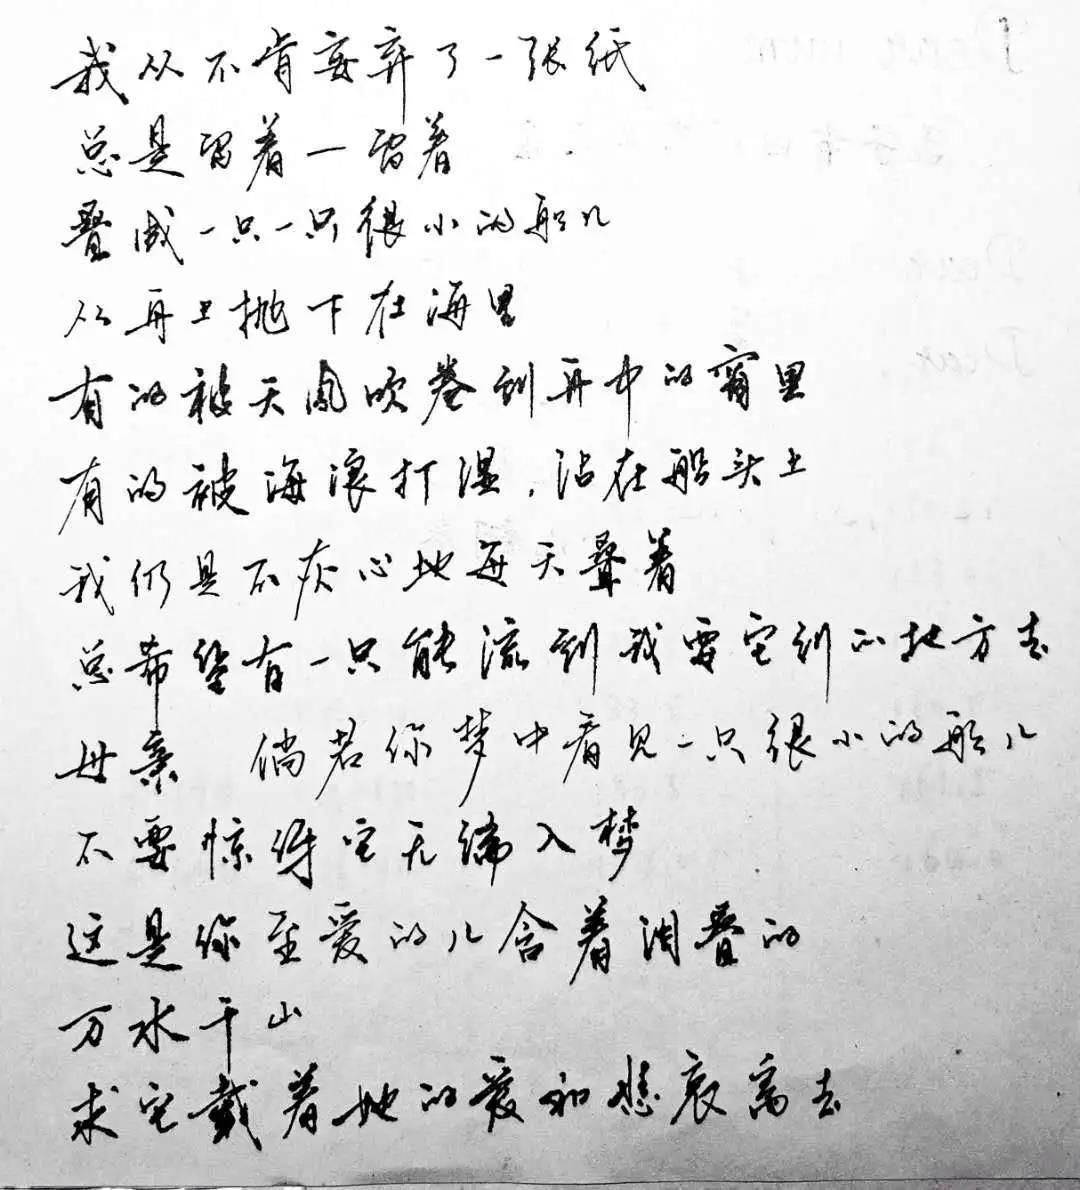 我从不肯妄弃了一张纸
总是留着一留着
叠成一只一只很小的船儿
从舟上抛下在海里
有的被天风吹卷到舟中的窗里
有的被海浪打湿，沾在船头上
我仍是不灰心地每天叠着
总希望有一只能流到我要它到的地方去
母亲 倘若你梦中看见一只很小的船儿
不要惊讶它无端入梦
这是你至爱的儿含着泪叠的
万水千山
求它戴着她的爱和悲哀离去